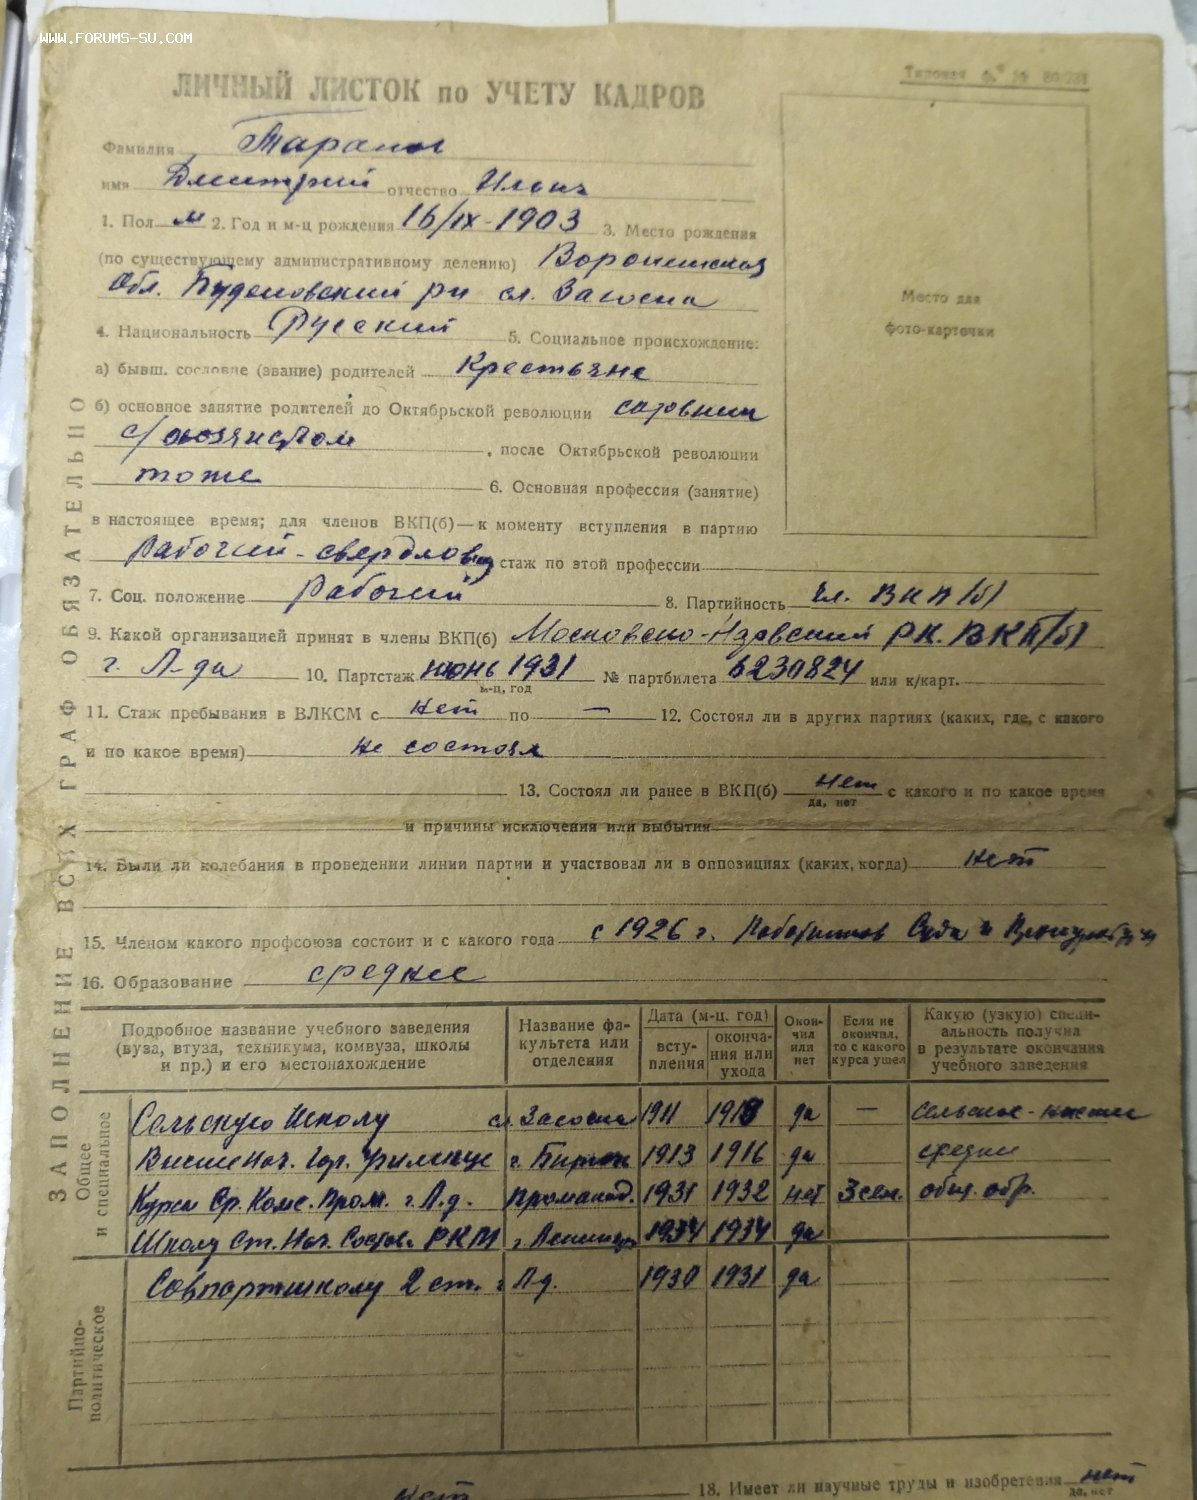 WWW.FORUMS-SU.COM
Типовая ф. №
ЛИЧНЫЙ ЛИСТОК по УЧЕТУ КАДРОВ
Фамилия
имя Дмитрий отчество Ильич
1. Пол м 2. Год и м-ц рождения 16/IX-1903 3. Место рождения
(по существующему административному делению) Воронежская
Обл. Буденовский рн сл. Засосна
Место для
фото-карточки
4. Национальность Русский 5. Социальное происхождение:
а) бывш. сословие (звание) родителей Крестьяне
б) основное занятие родителей до Октябрьской революции садовник
с/хозяйством, после Октябрьской революции
тоже 6. Основная профессия (занятие)
в настоящее время; для членов ВКП(б)—к моменту вступления в партию
Рабочий-сверловщ стаж по этой профессии
7. Соц. положение Рабочий 8. Партийность чл. ВКП/б/
9. Какой организацией принят в члены ВКП(б) Московско-Нарвский РК. ВКП/б/
г. Л-да 10. Партстаж июнь 1931 № партбилета 6230824 или к/карт.
м-ц, год
11. Стаж пребывания в ВЛКСМ с нет по — 12. Состоял ли в других партиях (каких, где, с какого
и по какое время) не состоял
13. Состоял ли ранее в ВКП(б) нет с какого и по какое время
да, нет
и причины исключения или выбытия
14. Были ли колебания в проведении линии партии и участвовал ли в оппозициях (каких, когда) нет
15. Членом какого профсоюза состоит и с какого года с 1926 г. Работников Суда и Прокуратуры
16. Образование среднее
ЗАПОЛНЕНИЕ ВСЕХ ГРАФ ОБЯЗАТЕЛЬНО
Подробное название учебного заведения (вуза, втуза, техникума, комвуза, школы и пр.) и его местонахождение
Название факультета или отделения
Дата (м-ц. год)
вступления
окончания или ухода
Окончил или нет
Если не окончил, то с какого курса ушел
Какую (узкую) специальность получил в результате окончания учебного заведения
Общее и специальное
Сельскую Школу сл. Засосна 1911 да — сельское-
Высшенач. Гор. г. Бирюч 1913 1916 да средн
Курсы Ср. Ком. Пром. г. Л.д. Промакад. 1931 1932 нет 3 сем. общ. обр.
Школу Ст. Нач. Состав. РКМ г. Ленингр 1934 1934 да
Партийно-политическое
Совпартшколу 2 ст. г. Л.д. 1930 1931 да
нет 18. Имеет ли научные труды и изобретения нет
да, нет